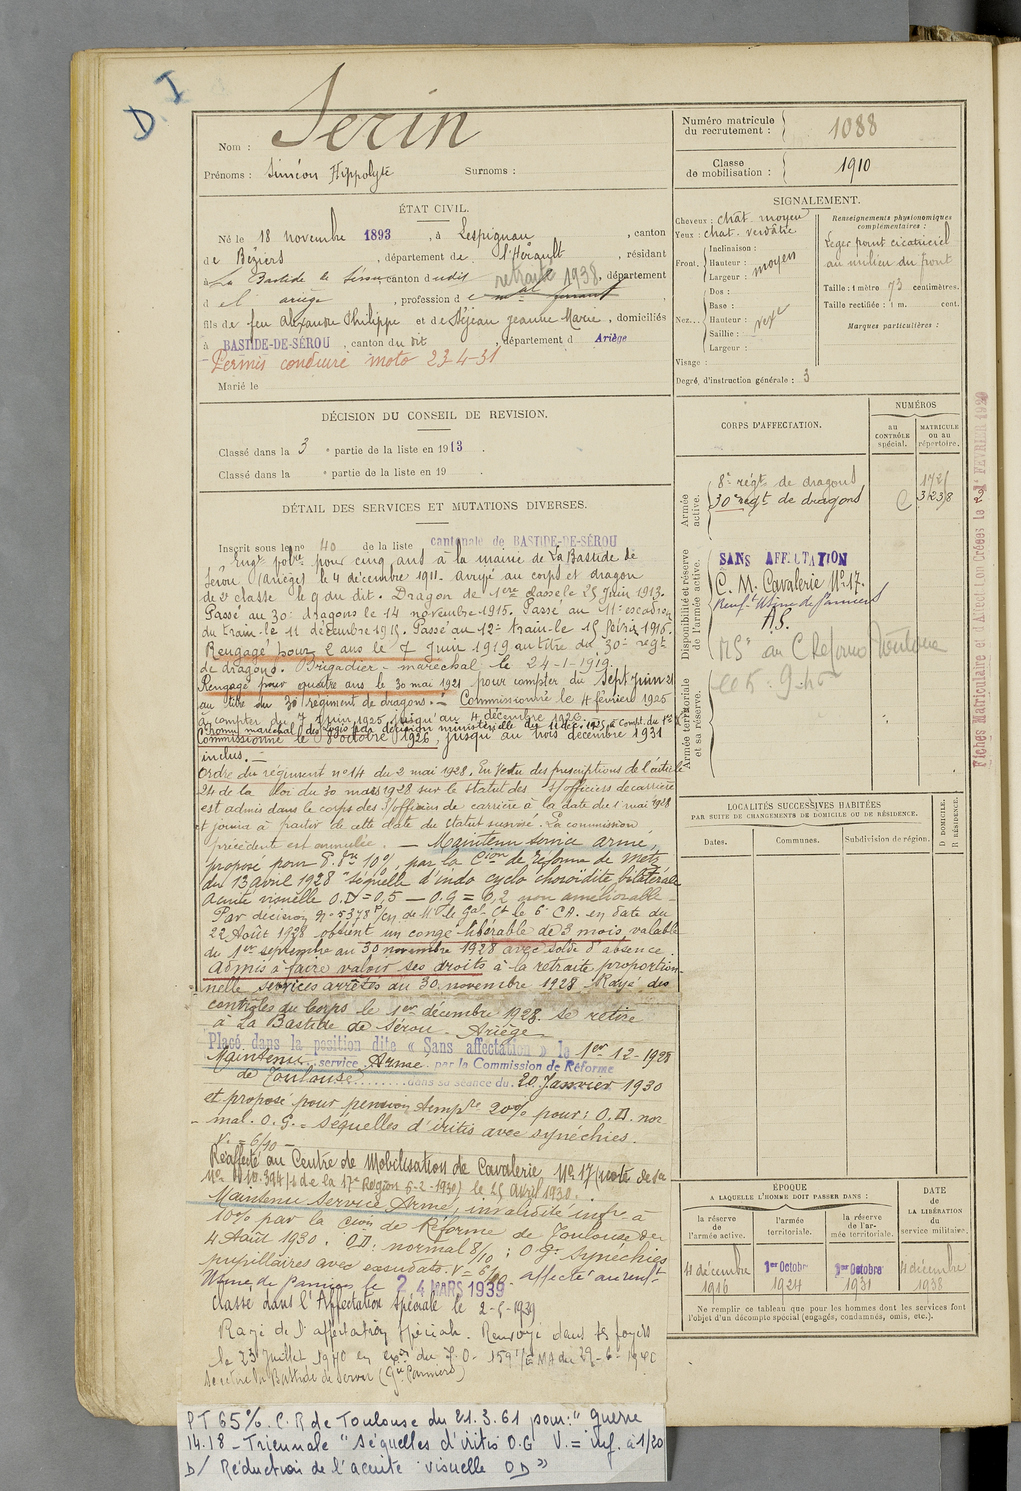 D. I
Nom : Serin
Prénoms : Siméon Hippolyte Surnoms :
Numéro matricule du recrutement : 1088
Classe de mobilisation : 1910
ÉTAT CIVIL.
Né le 18 novembre 1893, à Lespignan, canton
de Béziers, département de l'Hérault, résidant
à La Bastide de Sérou canton dudit retraité 1938, département
d el ariège, profession d
fils de feu Alexandre Philippe et de Séjean Jeanne Marie, domiciliés
à BASTIDE-DE-SÉROU, canton du dit, département d Ariège
Permis conduire moto 23-4-31
Marié le
SIGNALEMENT.
Cheveux : chât. moyen
Yeux : chat. verdâtre
Front. Inclinaison :
Hauteur : moyen
Largeur :
Nez. Dos :
Base :
Hauteur : vexe
Saillie :
Largeur :
Visage :
Degré d'instruction générale : 3
Renseignements physionomiques complémentaires :
Léger point cicatriciel
au milieu du front
Taille : 1 mètre 73 centimètres.
Taille rectifiée : 1 m. cent.
Marques particulières :
DÉCISION DU CONSEIL DE REVISION.
Classé dans la 3e partie de la liste en 1913.
Classé dans la e partie de la liste en 19 .
CORPS D'AFFECTATION.
NUMÉROS
au CONTRÔLE spécial.
MATRICULE ou au répertoire.
Armée active.
8e régt de dragons
30e régt de dragons C 3238
Disponibilité et réserve de l'armée active.
SANS AFFECTATION
C. M. Cavalerie No 17.
A.S.
Armée territoriale et sa réserve.
Fiches Matriculaire et d'Affectation Créées le FÉVRIER
DÉTAIL DES SERVICES ET MUTATIONS DIVERSES.
Inscrit sous le no 40 de la liste cantonale de BASTIDE-DE-SÉROU
Engt volre pour cinq ans à la mairie de La Bastide de
Sérou (Ariège) le 4 décembre 1911. arrivé au corps et dragon
de 2e classe le 9 du dit. Dragon de 1ere classe le 25 juin 1913.
Passé au 30e dragons le 14 novembre 1915. Passé au 11e escadron
du train le 11 décembre 1915. Passé au 12e train le 15 février 1916.
Rengagé pour 2 ans le 7 Juin 1919 au titre du 30e régt
de dragons. Brigadier-maréchal le 24-1-1919.
Rengagé pour quatre ans le 30 mai 1921 pour compter du Sept juin 21
au titre du 30e régiment de dragons. Commissionné le 4 février 1925
à compter du 7 Juin 1925 jusqu'au 4 décembre 1926.
Promu maréchal des logis par décision ministérielle du
Commissionné le 8 octobre 1926, jusqu'au trois décembre 1931
inclus.
Ordre du régiment no 14 du 2 mai 1928. En vertu des prescriptions de l'article
24 de la loi du 30 mars 1928 sur le statut des s/officiers de carrière
est admis dans le corps des s/officiers de carrière à la date du 1 mai 1928
et jouira à partir de cette date du statut susvisé. La commission
précédente est annulée. — Maintenu service armé,
proposé pour P. Pre 10%, par la Cion de réforme de Metz
du 13 avril 1928 "séquelle d'irido cyclo choroïdite bilatérale
acuité visuelle O.D = 0,5 — O.G = 0,2 non améliorable.
Par décision no 5378 P/cn de Mr le Gal Ct le 6e CA. en date du
22 Août 1928 obtient un congé libérable de 3 mois valable
du 1er septembre au 30 novembre 1928 avec solde d'absence.
Admis à faire valoir ses droits à la retraite proportion-
nelle services arrêtés au 30 novembre 1928. Rayé des
contrôles du Corps le 1er décembre 1928. Se retire
à La Bastide de Sérou. Ariège
Placé dans la position dite « Sans affectation » le 1er 12-1928
Maintenu service Armé par la Commission de Réforme
de Toulouse dans sa séance du 20 Janvier 1930
et proposé pour pension tempre 20% pour : O.D. nor
mal. O.G. = séquelles d'iritis avec synéchies.
V. = 6/10 —
Réaffecté au Centre de Mobilisation de Cavalerie No 17 (note de
de la 17e Région 5-2-1930) le 25 avril 1930.
Maintenu Service Armé, invalidité infre à
10% par la Cion de Réforme de Toulouse du
4 Août 1930. OD : normal 8/10 ; OG synéchies
pupillaires avec exsudats. V = 6/10. affecté au renft
Usine de Pamiers le 24 MARS 1939
Classé dans l'Affectation spéciale le 2-5-1939
Rayé de l'affectation spéciale. Renvoyé dans ses foyers
le 23 Juillet 1940 en
Se retire La Bastide de Serou
PT 65%. C.R de Toulouse du 21.3.61 pour : "Guerre
14.18 - Triennale "Séquelles d'iritis O.G V. = inf. à 1/20
D/ Réduction de l'acuité visuelle OD"
LOCALITÉS SUCCESSIVES HABITÉES
PAR SUITE DE CHANGEMENTS DE DOMICILE OU DE RÉSIDENCE.
D DOMICILE. R RÉSIDENCE.
Dates. Communes. Subdivision de région.
ÉPOQUE
A LAQUELLE L'HOMME DOIT PASSER DANS :
DATE de LA LIBÉRATION du service militaire.
la réserve de l'armée active.
l'armée territoriale.
la réserve de l'armée territoriale.
4 décembre 1916
1er Octobre 1924
1er Octobre 1931
4 décembre 1938
Ne remplir ce tableau que pour les hommes dont les services font
l'objet d'un décompte spécial (engagés, condamnés, omis, etc.).